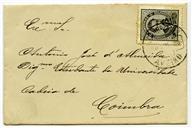 Ex.mo
Sr.
Antonio José d'Almeida
Dig.mo Estudante da Universidade
Cadeia de
Coimbra